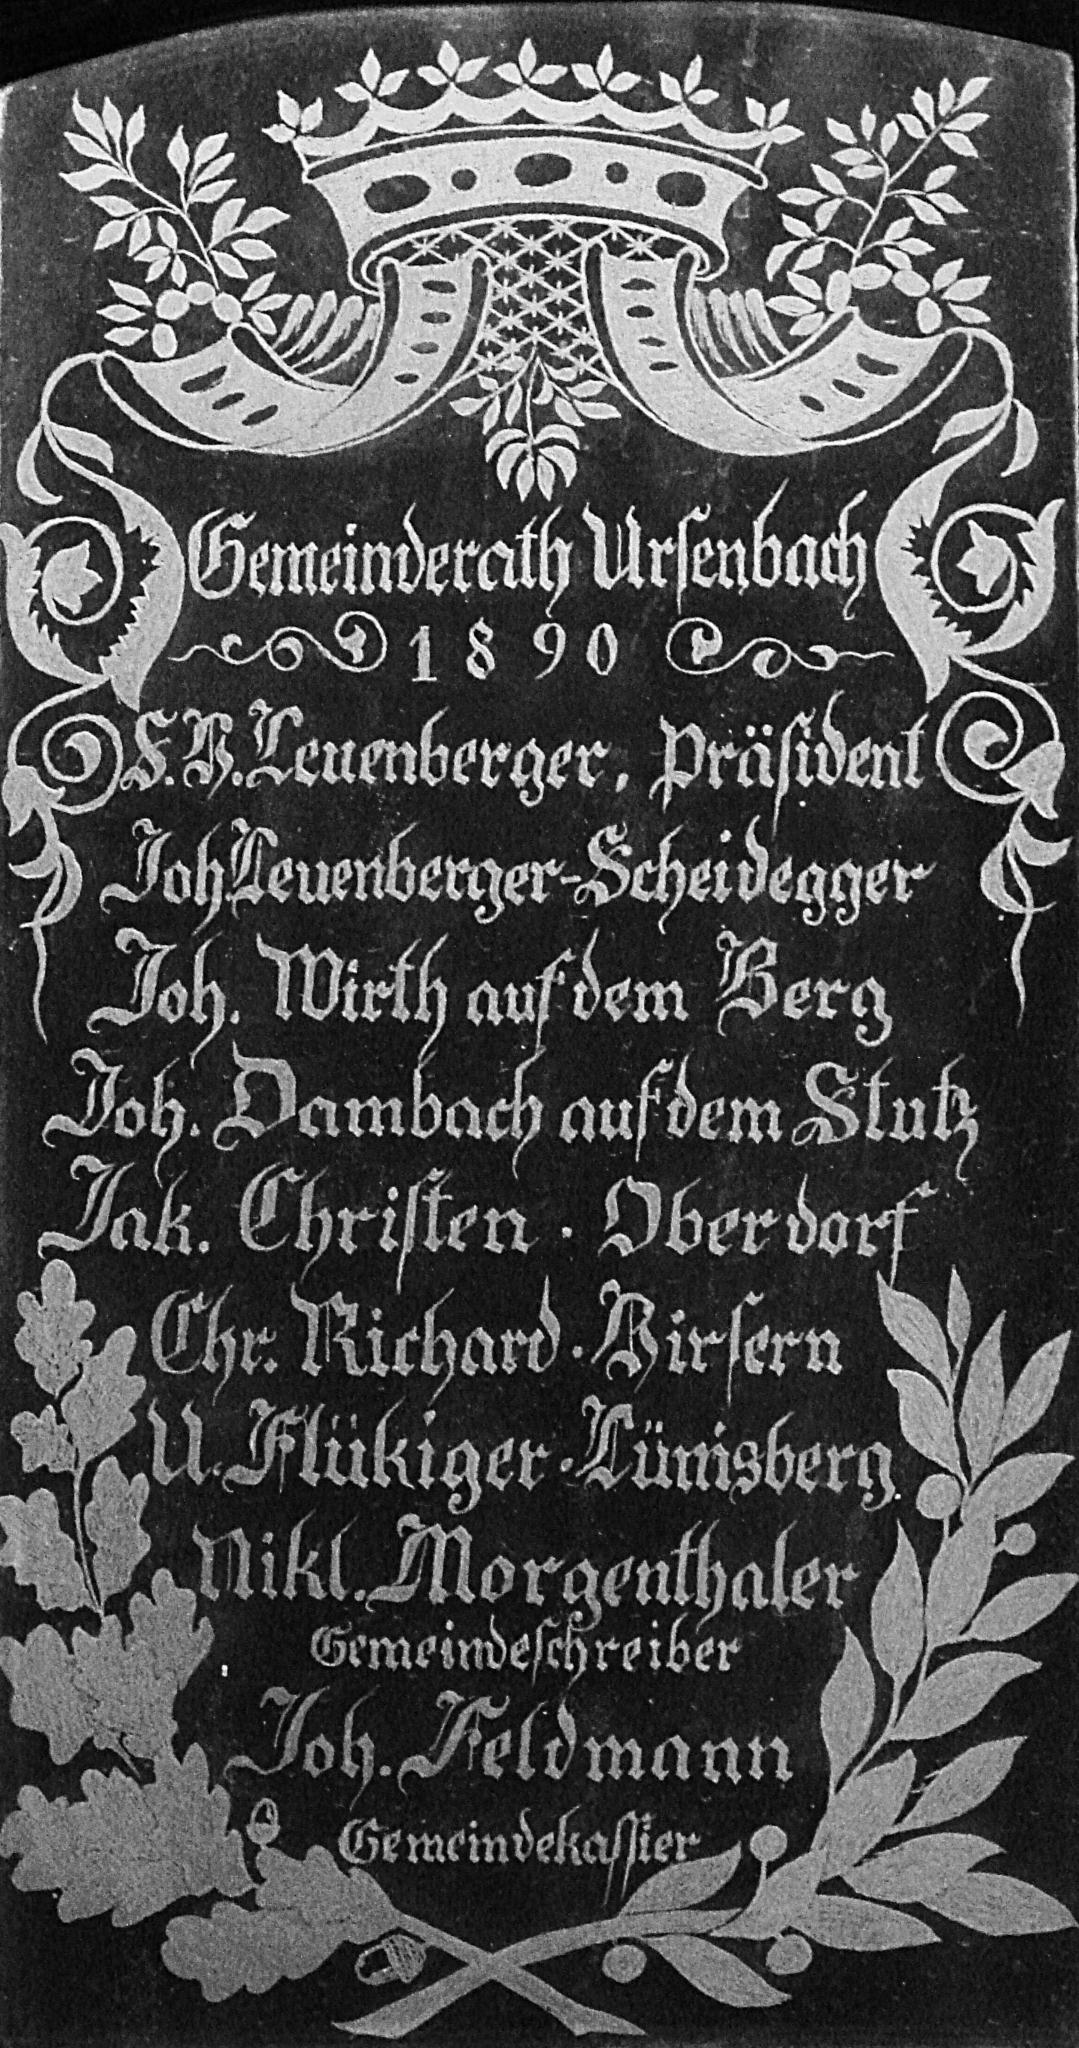 Gemeinderath Ursenbach
1890
F. B. Leuenberger, Präsident
Joh. Leuenberger-Scheidegger
Joh. Wirth auf dem Berg
Joh. Dambach auf dem Stutz
Jak. Christen · Oberdorf
Chr. Richard · Hirsern
U. Flükiger · Lünisberg
Nikl. Morgenthaler
Gemeindeschreiber
Joh. Feldmann
Gemeindekassier